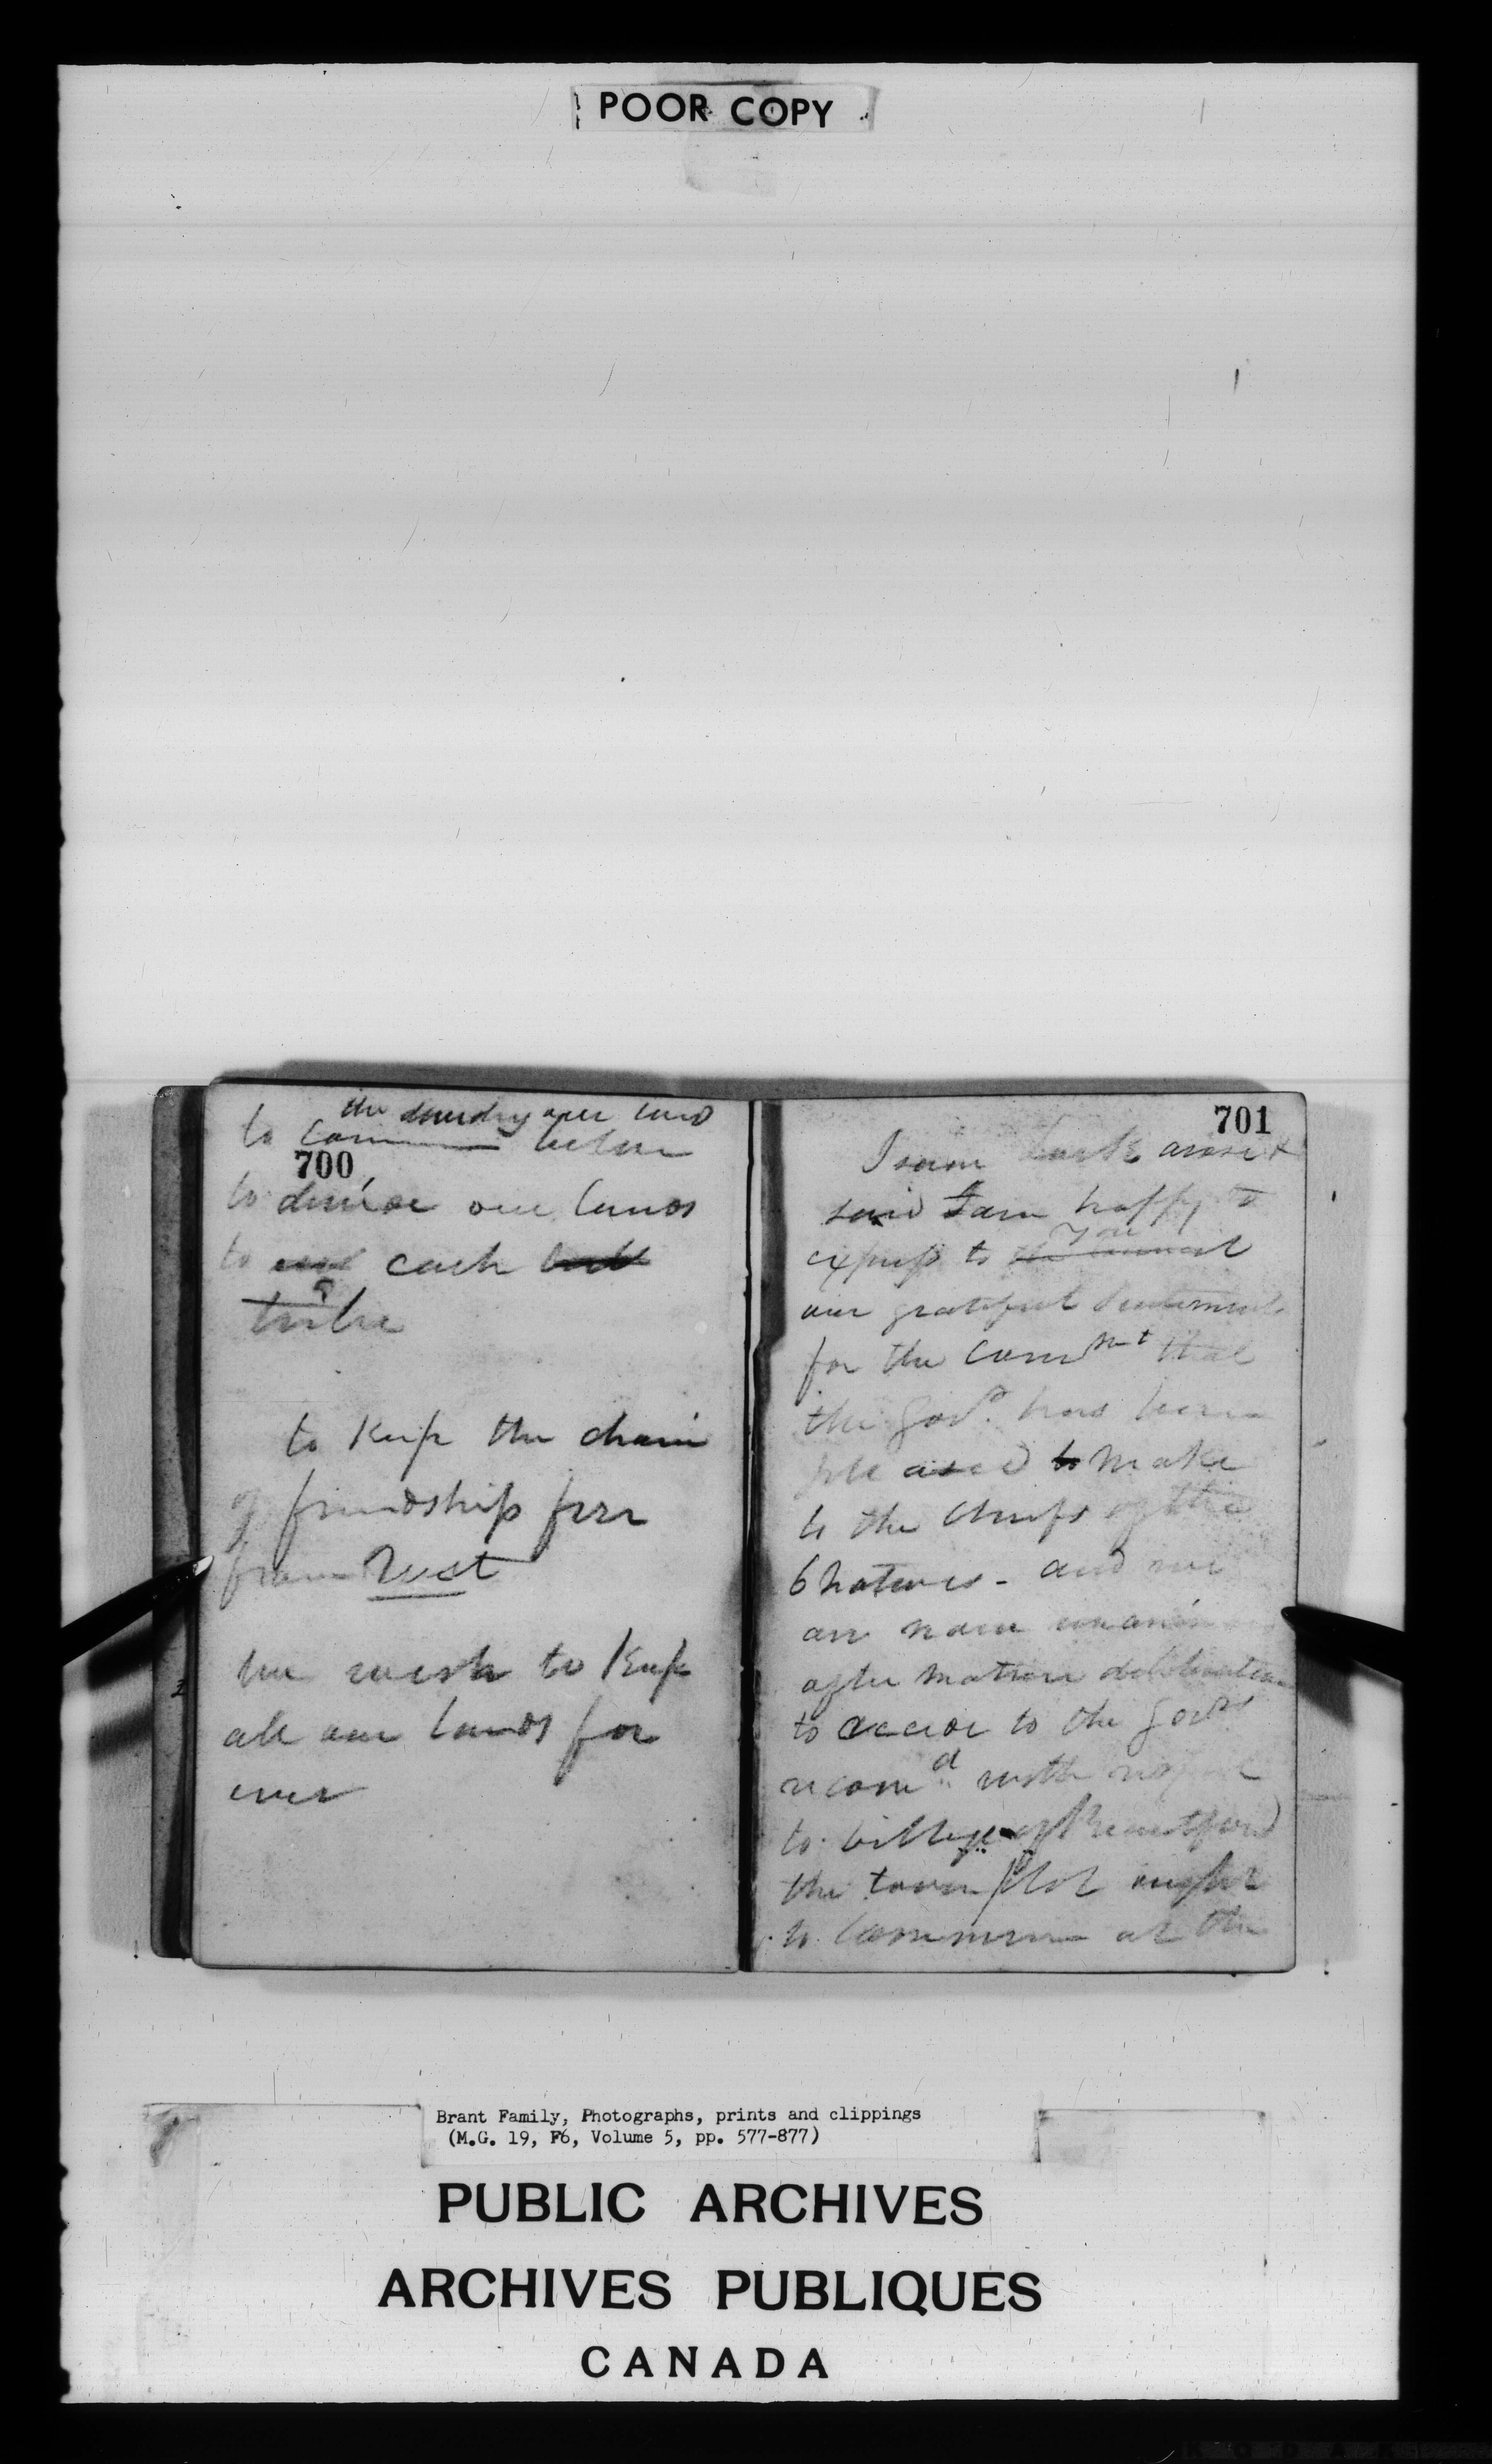 POOR COPY
the our land
to
700
to our lands
to each
tribe
to Keep the chain
of friendship free
from Rust
we wish to Keep
all our lands for
ever
701
Isaac arose &
said I am happy to
you
express to the council
our grateful sentiments
for the that
the Govr. has been
pleased to make
to the Chiefs of the
6 nations - and we
are now
after mature deliberation
to accede to the Govrs
recomd with respect
to village of Brantford
the town plot ought
to commence at the
Brant Family, Photographs, prints and clippings
(M.G. 19, F6, Volume 5, pp. 577-877)
PUBLIC ARCHIVES
ARCHIVES PUBLIQUES
CANADA